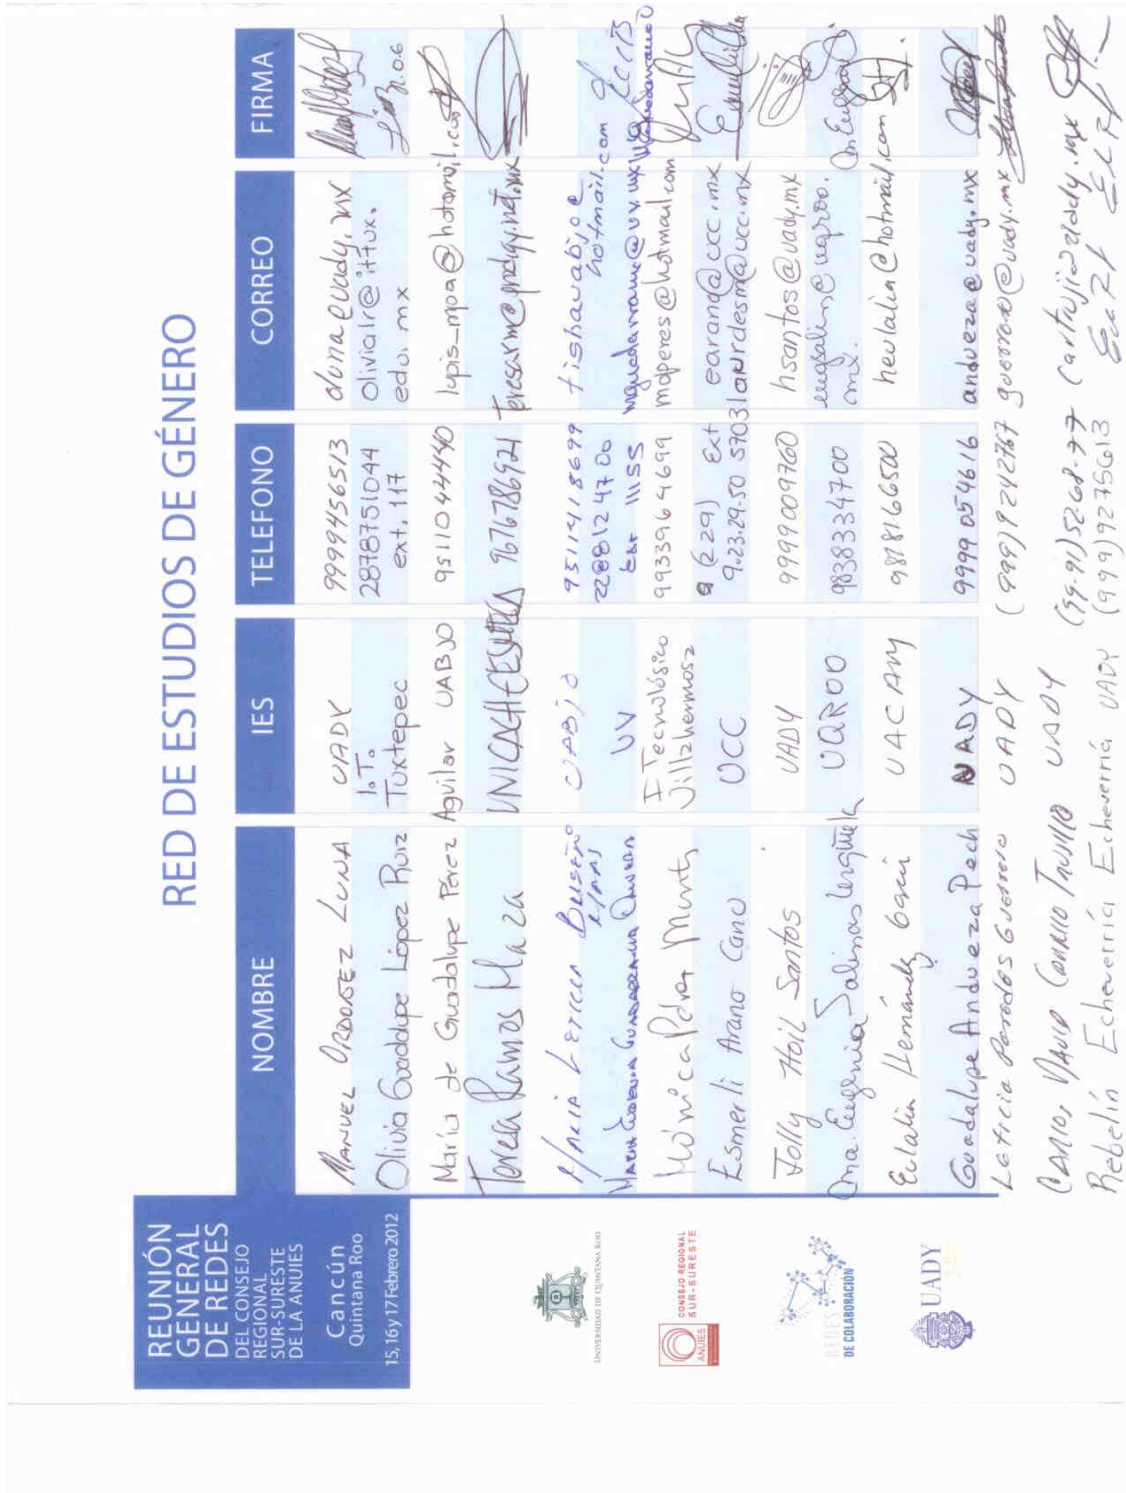 REUNIÓN
GENERAL
DE REDES
DEL CONSEJO
REGIONAL
SUR-SURESTE
DE LA ANUIES
Cancún
Quintana Roo
15, 16 y 17 Febrero 2012
UNIVERSIDAD DE QUINTANA ROO
CONSEJO REGIONAL
SUR-SURESTE
ANUIES
REDES
DE COLABORACIÓN
UADY
RED DE ESTUDIOS DE GÉNERO
NOMBRE IES TELEFONO CORREO FIRMA
MANUEL ORDOÑEZ LUNA UADY 9999456513 oluna@uady.mx
Olivia Guadalupe López Ruiz I.T. Tuxtepec 2878751044 ext. 117 olivialr@ittux.edu.mx
María de Guadalupe Pérez Aguilar UABJO 9511044440 lupis_mpa@hotmail.com
Teresa Ramos Maza UNICACH-CESMECA 9676786921 teresarm@prodigy.net.mx
MARIA LETICIA BRISEÑO MAAS UABJO 9511418699 tishauabjo@hotmail.com
MARIA EUGENIA GUADARRAMA OLIVERA UV 2288124700 Ext 11155 meguadarrama@uv.mx
Mónica Pdra. I Tecnológico Villahermosa 9933964699 mdperes@hotmail.com
Esmerli Arano Cano UCC (229) 9.23.29.50 Ext 5703 earano@ucc.mx lourdesm@ucc.mx
Jolly Hoil Santos UADY 9999009760 hsantos@uady.mx
Ma. Eugenia Salinas UQROO 9838334700 eugsalin@uqroo.mx.
Eulalia Hernández UACAM 9818166500 heulalia@hotmail.com
Guadalupe Andueza Pech UADY 9999 054616 andueza@uady.mx
Leticia Paredes Guerrero UADY (999) 9242767 guerrero@uady.mx
CARLOS DAVID CARRILLO TRUJILLO UADY (99-91) 5268-77 cartruji@uady.mx
Rebelín Echeverría Echeverría UADY (999) 9275613